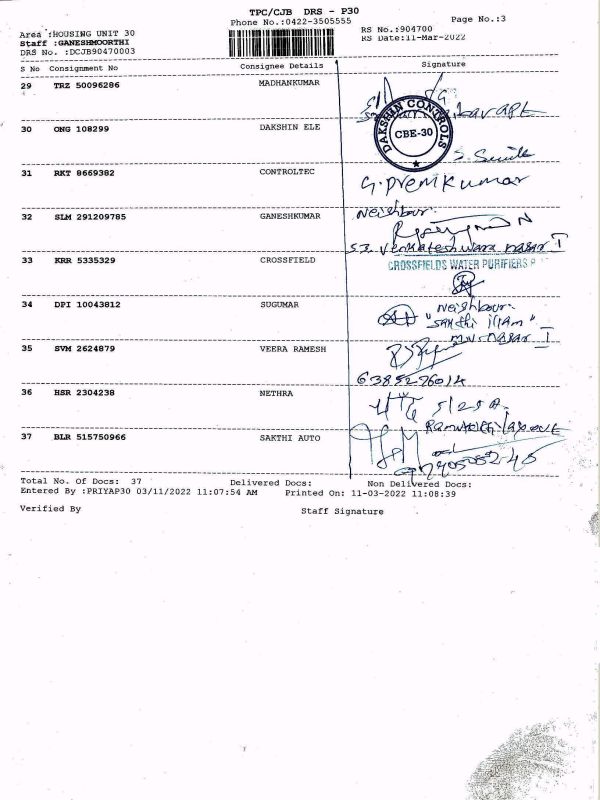 TPC/CJB DRS - P30
Phone No.:0422-3505555
Page No.:3
Area :HOUSING UNIT 30
RS No.:904700
Staff :GANESHMOORTHI
RS Date:11-Mar-2022
DRS No. :DCJB90470003
S No Consignment No Consignee Details Signature
29 TRZ 50096286 MADHANKUMAR
30 ONG 108299 DAKSHIN ELE
DAKSHIN CONTROLS
CBE-30
31 RKT 8669382 CONTROLTEC
G. Premkumar
32 SLM 291209785 GANESHKUMAR
Neighbour:
53. Venkateshwara nagar I
33 KRR 5335329 CROSSFIELD
CROSSFIELDS WATER PURIFIERS P
34 DPI 10043812 SUGUMAR
Neighbour:
"Sakthi illam"
M.N. nagar I
35 SVM 2624879 VEERA RAMESH
6385276014
36 HSR 2304238 NETHRA
37 BLR 515750966 SAKTHI AUTO
Total No. Of Docs: 37 Delivered Docs: Non Delivered Docs:
Entered By :PRIYAP30 03/11/2022 11:07:54 AM Printed On: 11-03-2022 11:08:39
Verified By Staff Signature